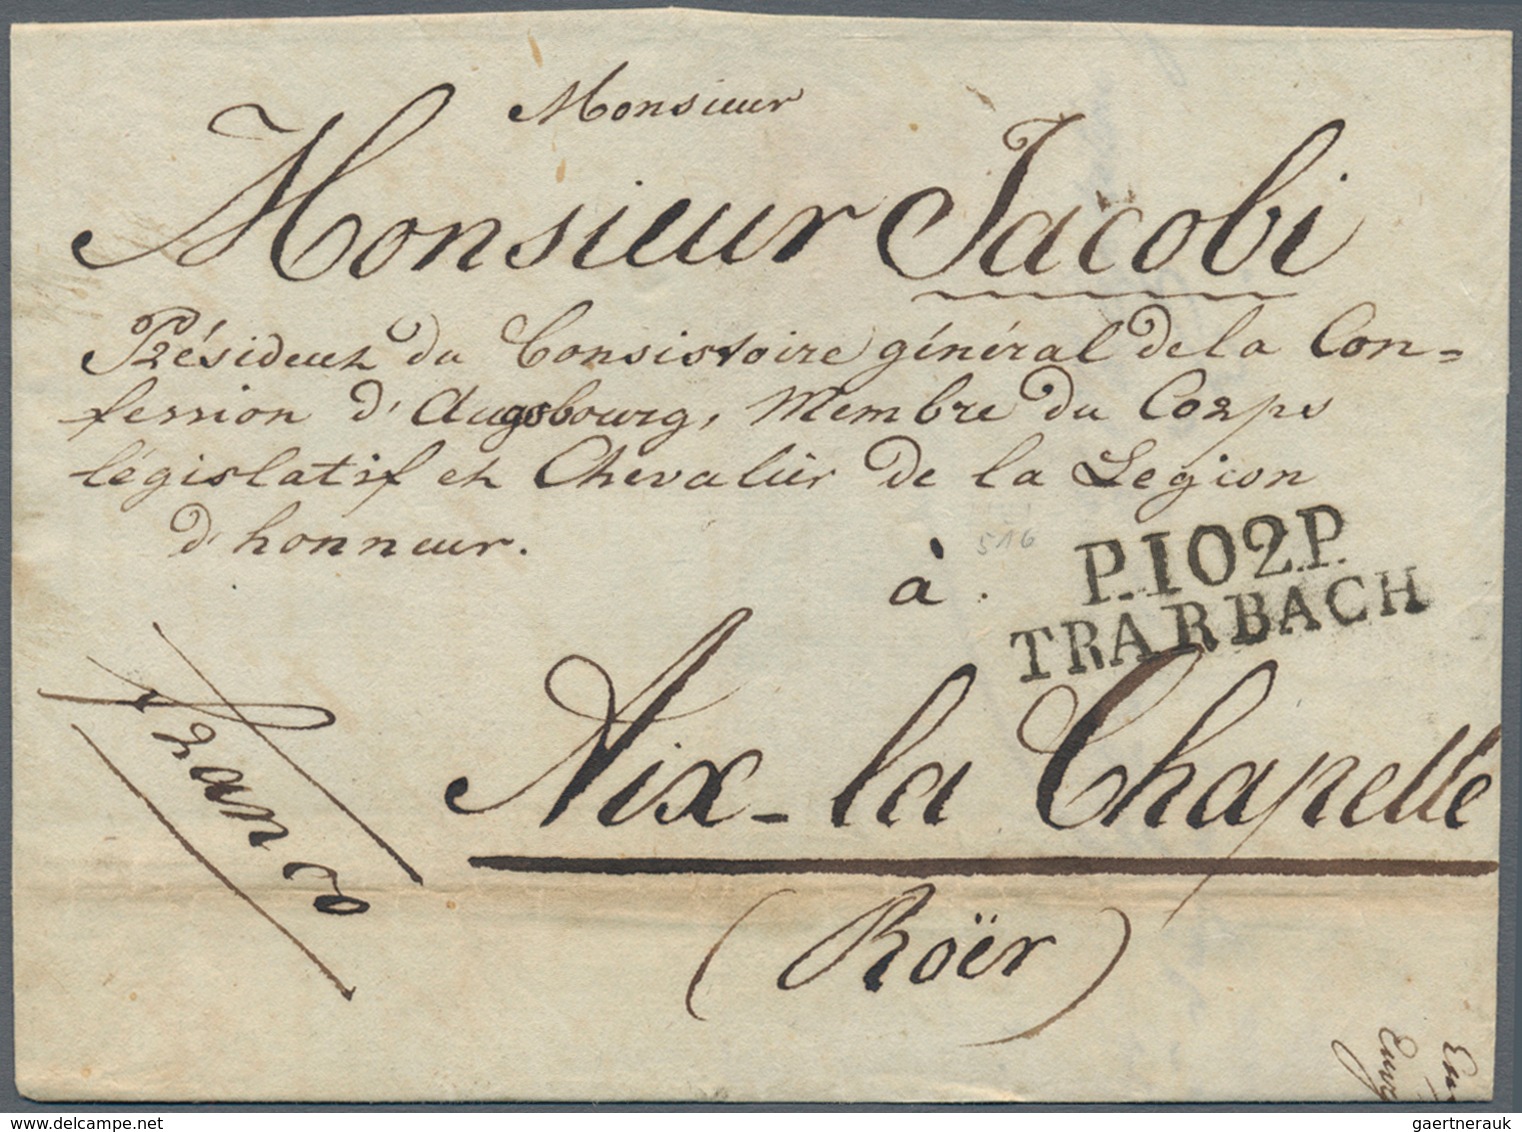 Monsieur
Monsieur Jacobi
Président du Consistoire général de la Con=
fession d'Augsbourg, Membre du Corps
législatif et Chevalier de la Legion
d'honneur.
516
à
P.102.P.
TRARBACH
Aix-la Chapelle
(Roër)
franco
delcampe.net
gaertnerauk